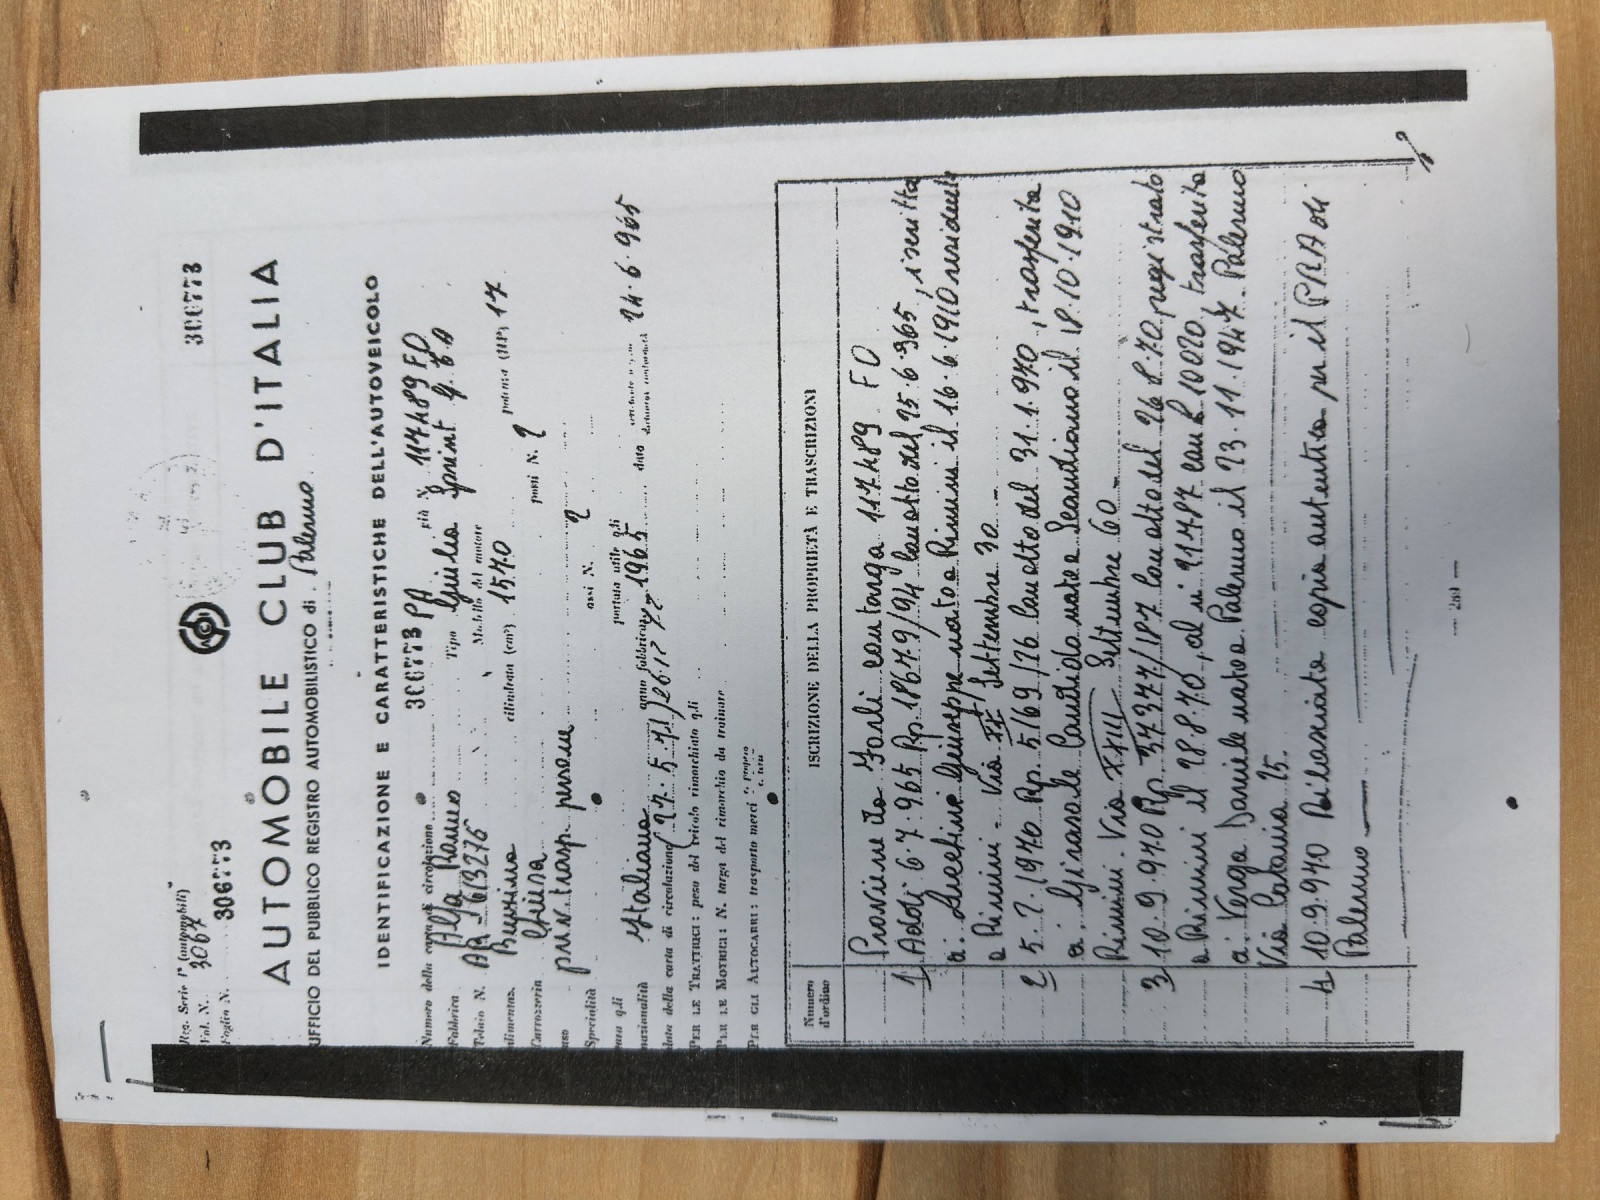 Reg. Serie 1ª (automobili)
Vol. N. 3067
Foglio N. 306773
306773
ACI
AUTOMOBILE CLUB D'ITALIA
UFFICIO DEL PUBBLICO REGISTRO AUTOMOBILISTICO di Palermo
IDENTIFICAZIONE E CARATTERISTICHE DELL'AUTOVEICOLO
Numero della carta di circolazione 306773 PA già N. 117489 FO
Fabbrica Alfa Romeo Tipo Giulia Sprint
Telaio N. AR 613276 Modello del motore
alimentaz. Benzina cilindrata (cm³) 1570 potenza (HP) 17
Carrozzeria Chiusa posti N. 2
uso priv. trasp. persone
Specialità assi N. 2
tara q.li portata utile q.li
nazionalità Italiana anno fabbricaz. 1965 data 24.6.965
data della carta di circolazione
PER LE TRATTRICI: peso del veicolo rimorchiato q.li
PER LE MOTRICI: N. targa del rimorchio da trainare
PER GLI AUTOCARRI: trasporto merci proprio c. terzi
Numero d'ordine
ISCRIZIONE DELLA PROPRIETÀ E TRASCRIZIONI
Proviene da Forlì con targa 117489 FO
1) Addì 6.7.965 Rp. 18679/94 con atto del 25.6.965, iscritta
a: Giuseppe nato a Rimini il 16.6.1910 residente
a Rimini - Via XX Settembre 30 -
2 5.2.1970 Rp. 5169/26 con atto del 31.1.970, trasferita
a: Girasole Candido nato a Scandiano il 18.10.1910
Rimini. Via XXIII Settembre 60 -
3 10.9.970 Rp. 37377/187 con atto del 26.8.70 registrato
a Rimini il 28.8.70, al n. 21787 con £ 10020, trasferita
a: Verga Daniele nato a Palermo il 23.11.1947. Palermo
Via Catania 25.
4 10.9.970 Rilasciata copia autentica per il PRA di
Palermo
— 281 —